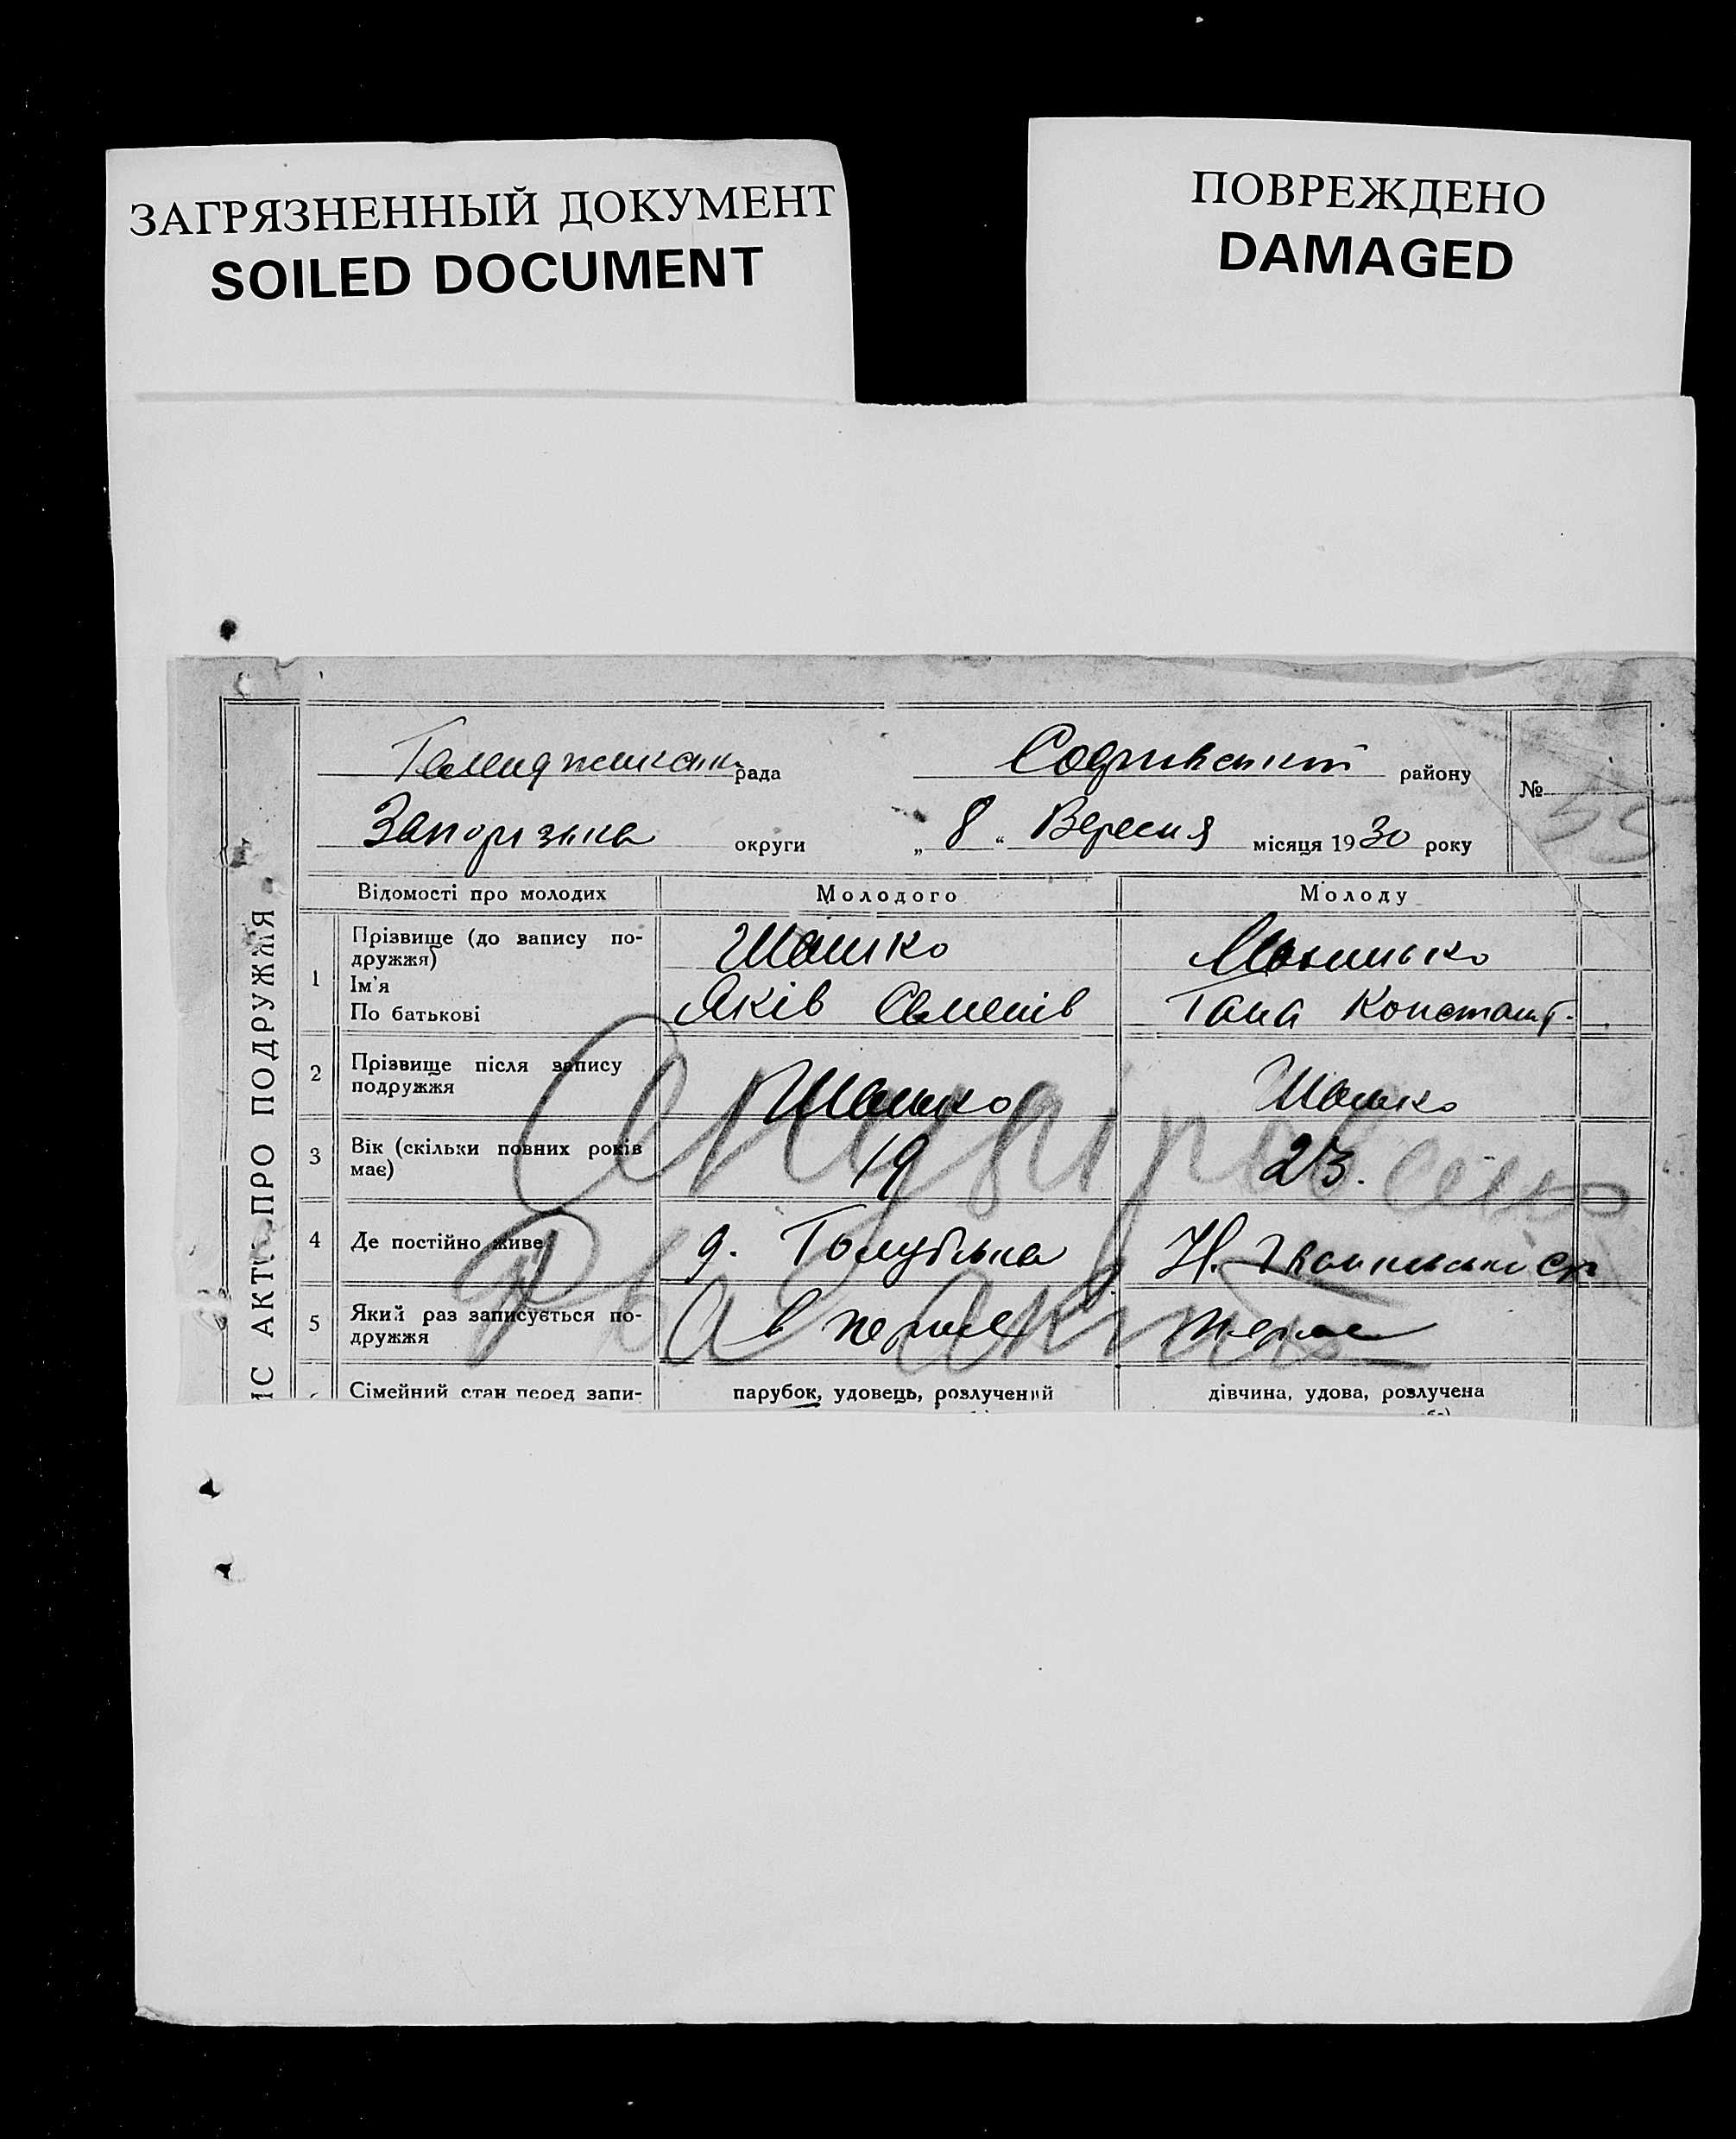 ЗАГРЯЗНЕННЫЙ ДОКУМЕНТ
SOILED DOCUMENT
ПОВРЕЖДЕНО
DAMAGED
рада
району
№
55
Запорізька округи
„ 8 “ Вересня місяця 1930 року
ИС АКТ ПРО ПОДРУЖЖЯ
Відомості про молодих
Молодого
Молоду
1
Прізвище (до запису по-
дружжя)
Ім'я
По батькові
Шашко
Яків Семенів
Гана Констант.
2
Прізвище після запису
подружжя
Шашко
Шашко
3
Вік (скільки повних років
має)
19
23.
4
Де постійно живе
5
Який раз записується по-
дружжя
в перше
перше
Сімейний стан перед запи-
парубок, удовець, розлучений
дівчина, удова, розлучена